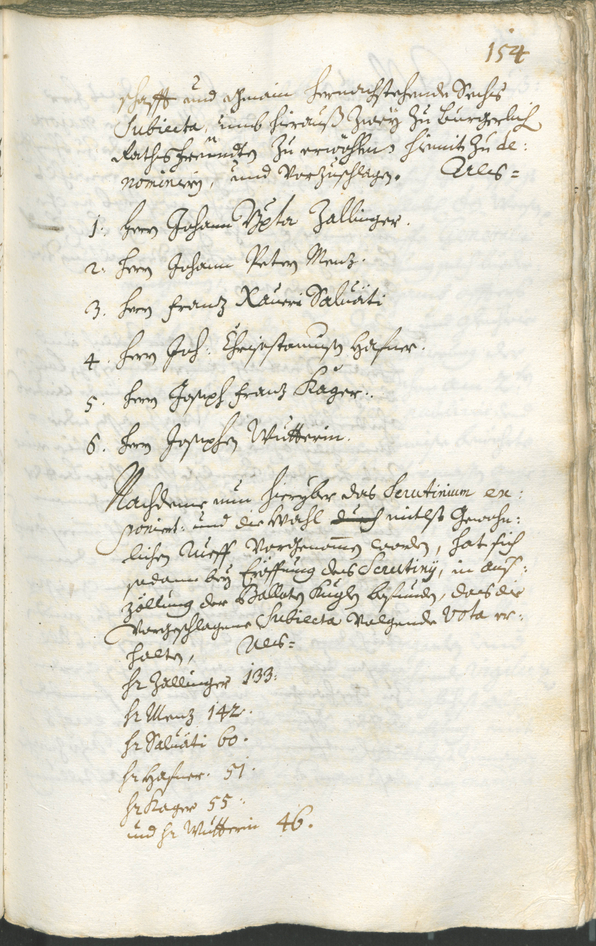 154
schafft und gemain hernachstehende Sechs
Subiecta, umb hierauß Zwey zu burgerlich
Rathsfreundten zu erwöhlen hiemit zu de:
nominiern, und vorzuschlagen. Als=
1. herrn Johann Bpta Zallinger.
2. herrn Johann Peter Menz.
3. herrn Frantz Xaueri Saluäti
4. herrn Joh: Chrisostomuß Hafner.
5. herrn Joseph Frantz Kager.
6. herrn Josephen Wütterin.
Nachdeme nun hieryber das Scrutinium ex:
poniert: und die Wahl durch mitlst gewohn:
lichen Aueff vorgenomen worden, hat sich
sodann bey Eröffnung des Scrutiny, in auß:
zöllung der Balloten Kuglen befunden, das die
vorgeschlagene Subiecta volgende Vota er:
halten, Als=
hr Zallinger 133.
hr Menz 142.
hr Saluäti 60.
hr Hafner. 51.
hr Kager 55.
und hr Wütterin 46.